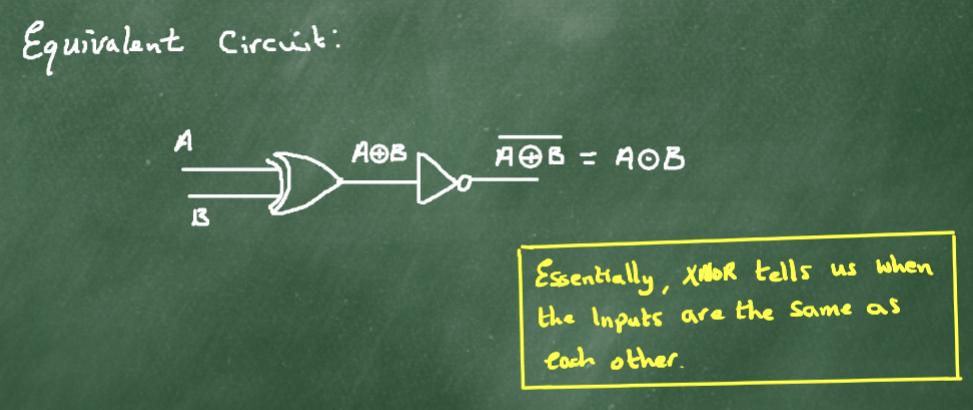 Equivalent Circuit:
A
A⊕B
A̅⊕̅B̅ = A⊙B
B
Essentially, XNOR tells us when
the Inputs are the same as
each other.